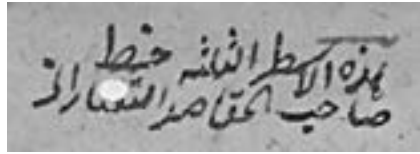 هذه الاسطر الثلثه خط
صاحب المقاصد التفتازانى